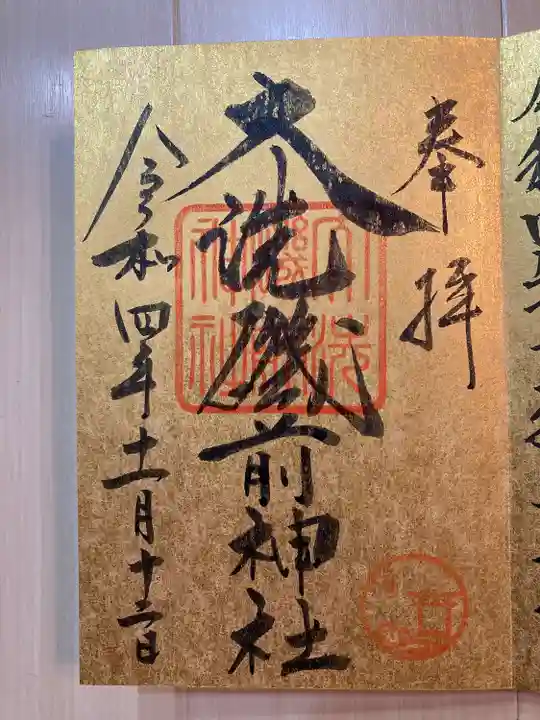 奉拝
大洗磯前神社
大洗
磯前
神社
令和四年十一月十二日